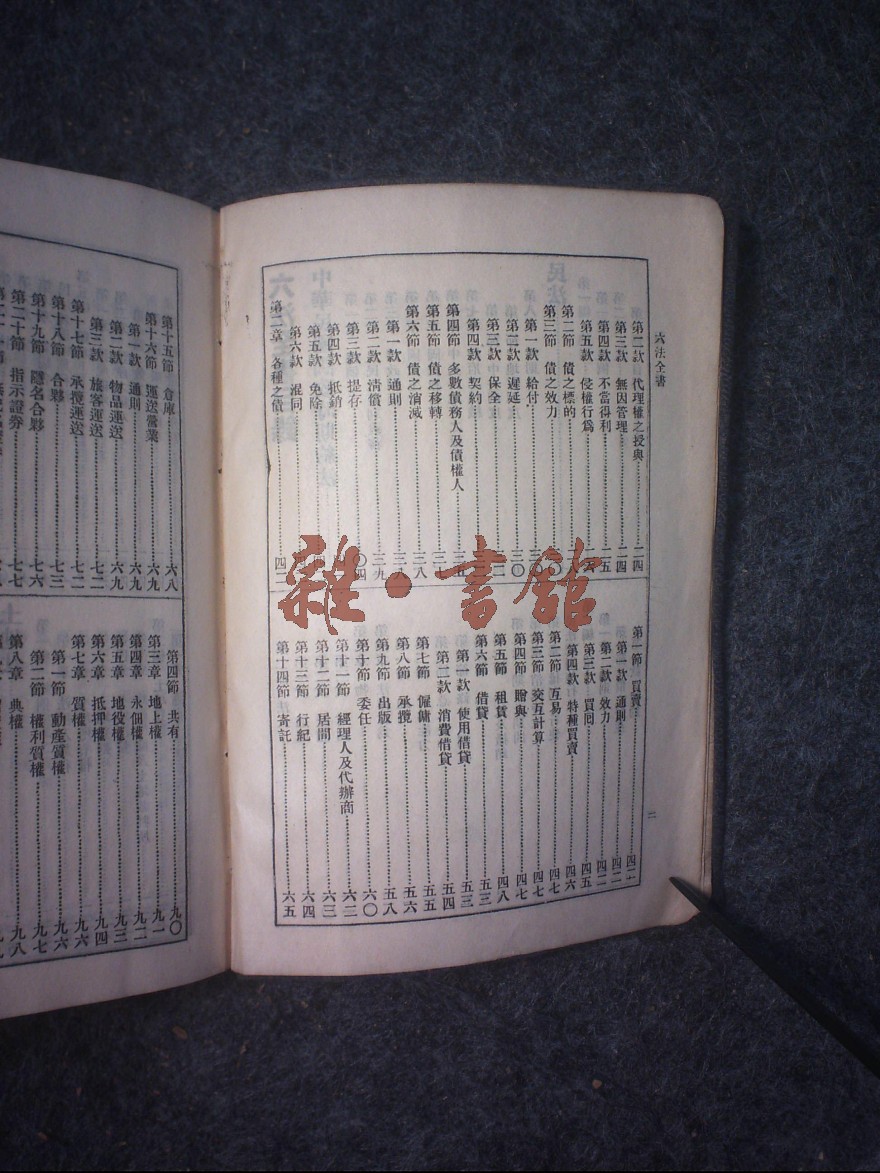 六法全書
第二款 代理權之授與 二四
第三款 無因管理 二四
第四款 不當得利 二五
第五款 侵權行爲
第二節 債之標的
第三節 債之效力
第一款 給付
第二款 遲延 三〇
第三款 保全
第四款 契約
第四節 多數債務人及債權人
第五節 債之移轉 三七
第六節 債之消滅 三八
第一款 通則 三八
第二款 清償 三九
第三款 提存 四〇
第四款 抵銷
第五款 免除
第六款 混同
第二章 各種之債 四二
第一節 買賣
第一款 通則 四二
第二款 效力 四二
第三款 買回 四五
第四款 特種買賣 四六
第二節 互易 四七
第三節 交互計算 四七
第四節 贈與 四七
第五節 租賃 四八
第六節 借貸 五三
第一款 使用借貸 五三
第二款 消費借貸 五四
第七節 僱傭 五五
第八節 承攬 五六
第九節 出版 五八
第十節 委任 六〇
第十一節 經理人及代辦商 六二
第十二節 居間 六三
第十三節 行紀 六四
第十四節 寄託 六五
二
第十五節 倉庫 六八
第十六節 運送營業 六九
第一款 通則 六九
第二款 物品運送 六九
第三款 旅客運送 七二
第十七節 承攬運送 七二
第十八節 合夥 七三
第十九節 隱名合夥 七六
第二十節 指示證券 七七
第四節 共有 九〇
第三章 地上權 九一
第四章 永佃權 九二
第五章 地役權 九三
第六章 抵押權 九四
第七章 質權 九六
第一節 動產質權 九六
第二節 權利質權 九七
第八章 典權 九八
雜·書館